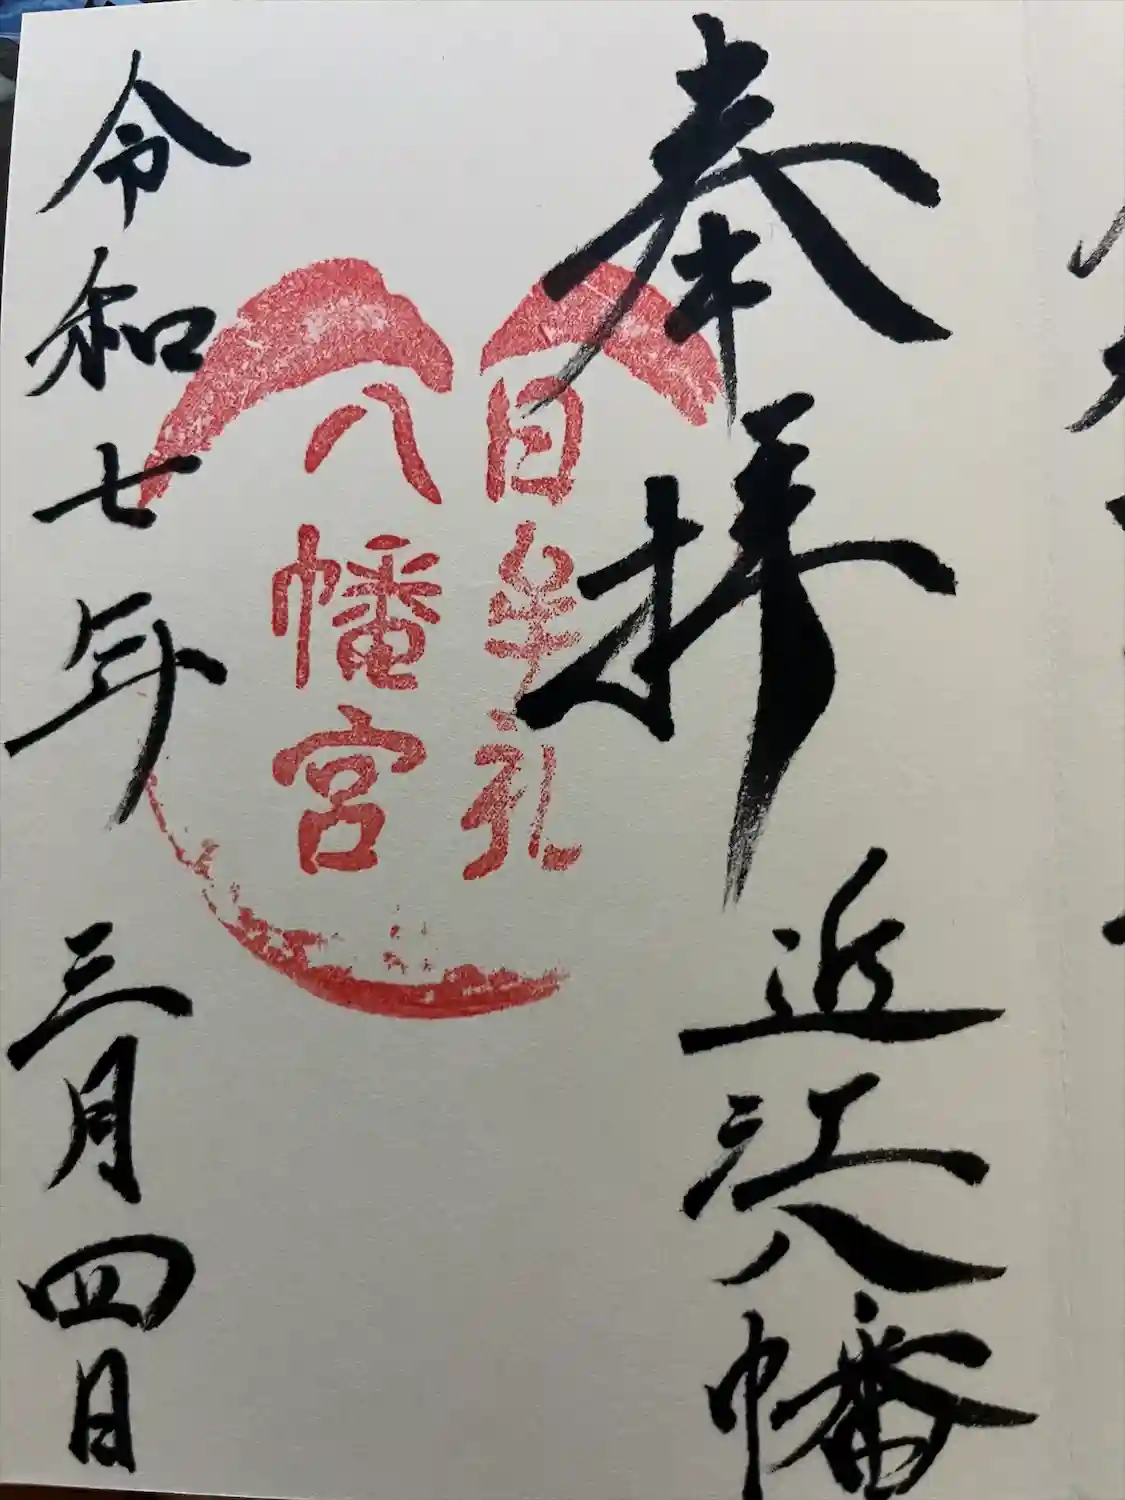 奉拝
近江八幡
日牟礼
八幡宮
令和七年三月四日